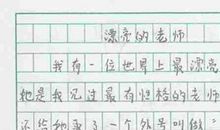 漂亮的老师
我有一位世界上最漂亮
她是我见过最有性格的老师
还给她取了一个外号叫做